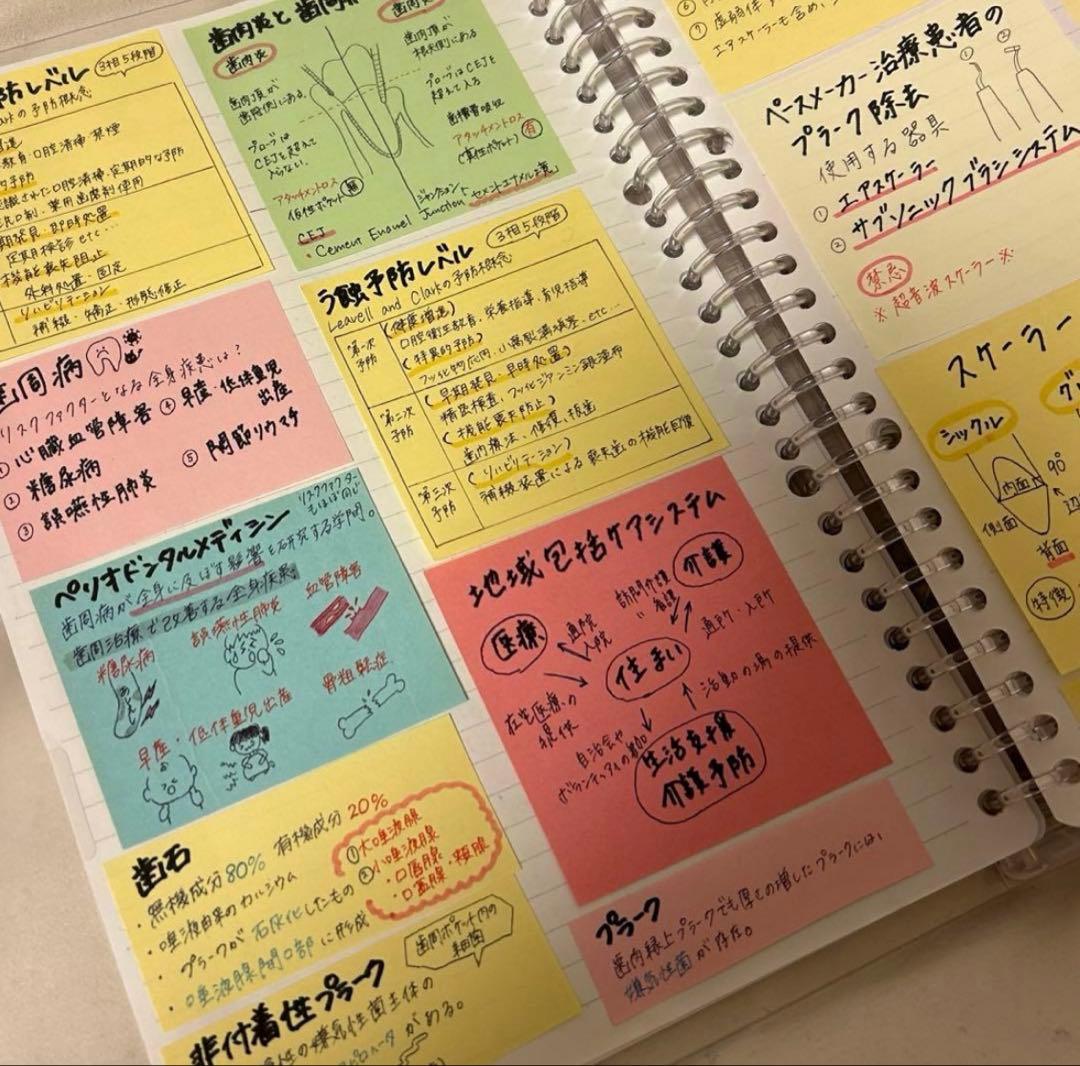 防レベル
3相5段階
Clarkの予防概念
口腔清掃・禁煙
的予防
定期的な予防
早期発見・即時処置
定期検診 etc...
機能喪失阻止
外科処置・固定
リハビリテーション
補綴・矯正・形態修正
歯肉炎と歯周
歯肉炎
歯肉頂が
歯冠側にある。
プローブは
CEJを超えて
入らない。
アタッチメントロス
無
仮性ポケット
歯肉頂が
根尖側にある
プローブはCEJを
超えて入る
歯槽骨吸収
アタッチメントロス
有
(真性ポケット)
CEJ
・Cement Enamel Junction
ジャンクション
セメントエナメル境
う蝕予防レベル
3相5段階
Leavell and Clarkの予防概念
第一次
予防
(健康増進)
口腔衛生教育、栄養指導、育児指導
(特異的予防)
フッ化物応用、小窩裂溝填塞、etc...
第二次
予防
(早期発見・即時処置)
精密検査、フッ化ジアンミン銀塗布
(機能喪失防止)
歯内療法、修復、抜歯
第三次
予防
(リハビリテーション)
補綴装置による喪失歯の機能回復
歯周病
リスクファクターとなる全身疾患は?
① 心臓血管障害
② 糖尿病
③ 誤嚥性肺炎
④ 早産・低体重児
出産
⑤ 関節リウマチ
ペリオドンタルメディシン
リスクファクター
もほぼ同じ
歯周病が全身に及ぼす影響を研究する学問。
歯周治療で改善する全身疾患。
糖尿病
誤嚥性肺炎
血管障害
早産・低体重児出産
骨粗鬆症
地域包括ケアシステム
医療
介護
住まい
生活支援
介護予防
通院
入院
訪問介護
〃 看護
通所・入所
在宅医療の
提供
活動の場の提供
自治会や
ボランティアの参加
歯石
無機成分80% 有機成分20%
・唾液由来のカルシウム
・プラークが石灰化したもの
・唾液腺開口部に形成
①大唾液腺
②小唾液腺
・口唇腺・頬腺
・口蓋腺
非付着性プラーク
歯周ポケット内の
細菌
性の嫌気性菌主体の
がある。
プラーク
歯肉縁上プラークでも厚さの増したプラークには、
嫌気性菌が存在。
エアスケーラーも含め、
ペースメーカー治療患者の
プラーク除去
使用する器具
① エアスケーラー
② サブソニックブラシシステム
①
②
禁忌
※超音波スケーラー※
スケーラー
シックル
内面
側面
背面
90°
特徴